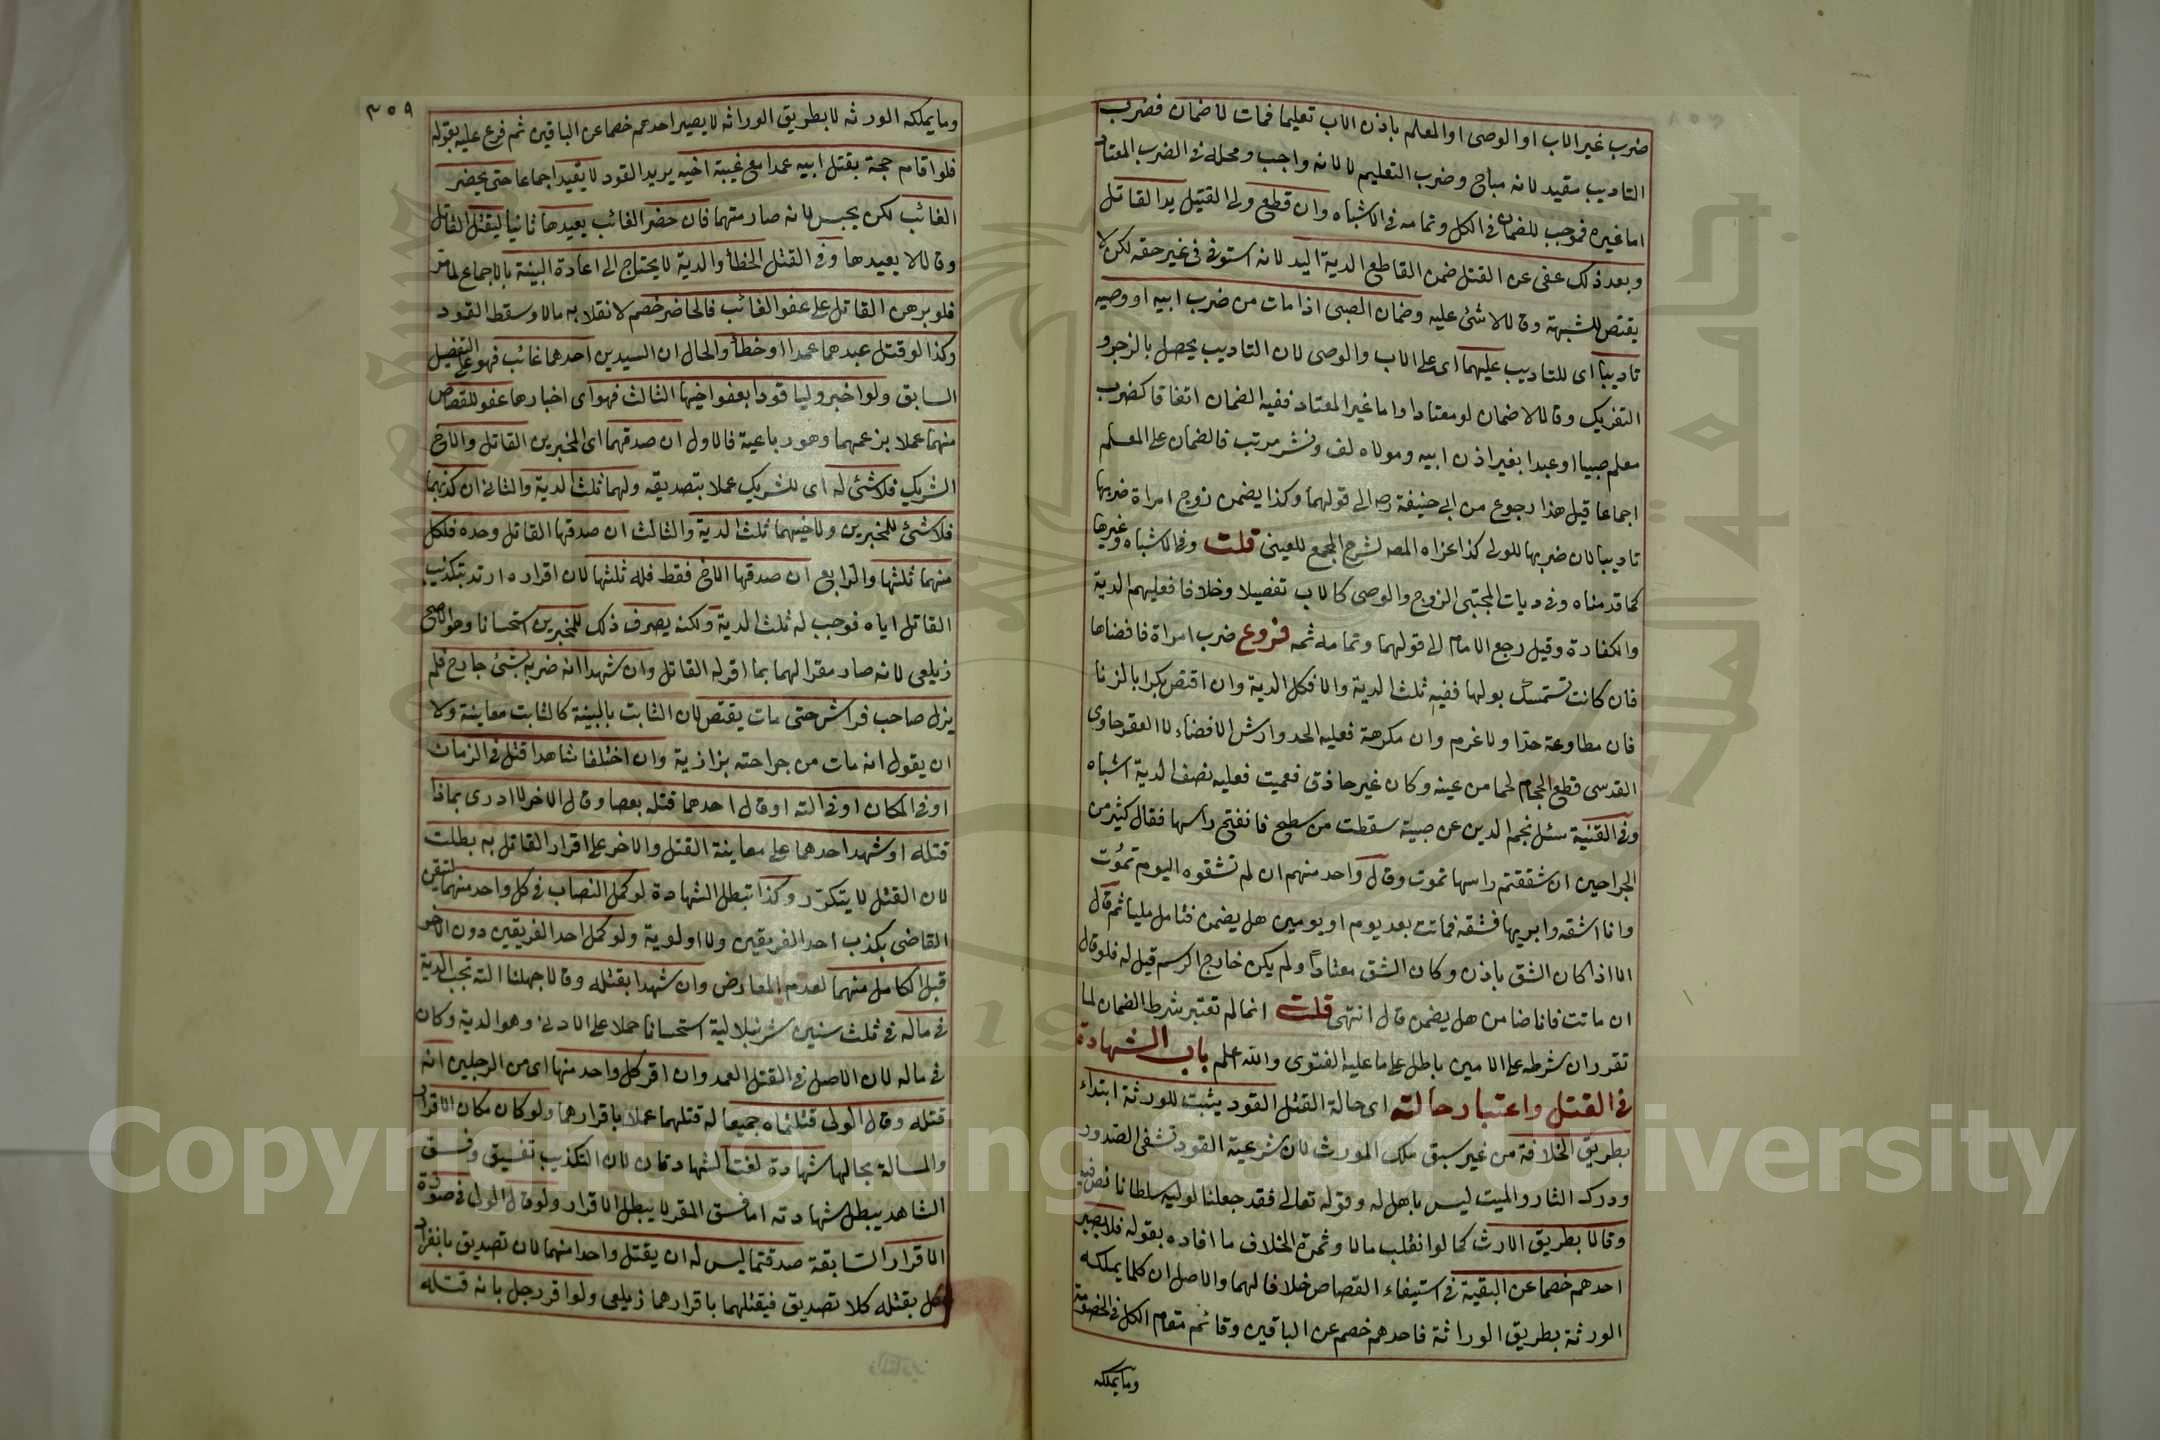 ضرب غير الاب او الوصى او المعلم باذن الاب تعليما فمات لا ضمان فضرب
التاديب مقيد لانه مباح وضرب التعليم لا لانه واجب ومحله فى الضرب المعتاد
اما غيره فموجب للضمان فى الكل وتمامه فى الاشباه وان قطع ولى القتيل يد القاتل
وبعد ذلك عفى عن القتل ضمن القاطع الدية اليد لانه استوفى فى غير حقه لكن لا
يقتص للشبهة وقالا لا شئ عليه وضمان الصبى اذا مات من ضرب ابيه او وصيه
تاديبا اى للتاديب عليهما اى على الاب والوصى لان التاديب يحصل بالزجر و
التفريك وقالا لا ضمان لو معتادا واما غير المعتاد ففيه الضمان اتفاقا كضرب
معلم صبيا او عبدا بغير اذن ابيه ومولاه لف ونشر مرتب فالضمان على المعلم
اجماعا قيل هذا رجوع من ابى حنيفة رح الى قولهما وكذا يضمن زوج امراة ضربها
تاديبا لان ضربها للولى كذا عزاه المصـ لشرح المجمع للعينى قلت وفى الاشباه وغيرها
كما قدمناه وفى ديات المجتبى الزوج والوصى كالاب تفصيلا وخلافا فعليهم الدية
والكفارة وقيل رجع الامام الى قولهما وتمامه ثمه فروع ضرب امراة فافضاها
فان كانت تستمسك بولها ففيه ثلث الدية والا فكل الدية وان اقتض بكرا بالزنا
فان مطاوعة حدّا ولا غرم وان مكرهة فعليه الحد وارش الافضاء لا العقر حاوى
القدسى قطع الحجام لحما من عينه وكان غير حاذق فعميت فعليه نصف الدية اشباه
وفى القنية سئل نجم الدين عن صبية سقطت من سطح فانفتح راسها فقال كثير من
الجراحين ان شققتم راسها تموت وقال واحد منهم ان لم تشقوه اليوم تموت
وانا اشقه وابريها فشقه فماتت بعد يوم او يومين هل يضمن فتامل مليا ثم قال
لا اذا كان الشق باذن وكان الشق معتاداً ولم يكن خارج الرسم قيل له فلو قال
ان ماتت فانا ضامن هل يضمن قال انتهى قلت انما لم تعتبر شرط الضمان لما
تقرر ان شرطه على الامين باطل على ما عليه الفتوى والله اعلم باب الشهادة
فى القتل واعتبار حالته اى حالة القتل القود يثبت للورثة ابتداء
بطريق الخلافة من غير سبق ملك المورث لان شرعية القود تشفى الصدور
ودرك الثار والميت ليس باهل له وقوله تعالى فقد جعلنا لوليه سلطانا نص فيه
وقالا بطريق الارث كما لو انقلب مالا وثمرة الخلاف ما افاده بقوله فلا يصير
احدهم خصما عن البقية فى استيفاء القصاص خلافا لهما والاصل ان كلما يملكه
الورثة بطريق الوراثة فاحدهم خصم عن الباقين وقائم مقام الكل فى الخصومة
وما يملكه
٣٥٩
وما يملكه الورثه لا بطريق الوراثه لا يصير احدهم خصما عن الباقين ثم فرع عليه بقوله
فلو اقام حجة بقتل ابيه عمدا مع غيبة اخيه يريد القود لا يقيد اجماعا حتى يحضر
الغائب لكن يحبس لانه صار متهما فان حضر الغائب يعيدها ثانيا ليقتل القاتل
وقالا لا يعيدها وفى القتل الخطأ والدية لا يحتاج الى اعادة البينة بالاجماع لما مر
فلو برهن القاتل على عفو الغائب فالحاضر خصم لانقلابه مالا وسقط القود
وكذا لو قتل عبدهما عمدا او خطأ والحال ان السيدين احدهما غائب فهو على التفصيل
السابق ولو اخبر وليا قود بعفو اخيها الثالث فهو اى اخبارهما عفو للقصاص
منهما عملا بزعمهما وهو رباعية فالاول ان صدقهما اى المخبرين القاتل والاخ
الشريك فلا شئ له اى للشريك عملا بتصديقه ولهما ثلثا الدية والثانى ان كذبهما
فلا شئ للمخبرين ولاخيهما ثلث الدية والثالث ان صدقهما القاتل وحده فلكل
منهما ثلثها والرابع ان صدقها الاخ فقط فله ثلثها لان اقراره ارتد بتكذيب
القاتل اياه فوجب له ثلث الدية ولكنه يصرف ذلك للمخبرين استحسانا وهو الاصح
زيلعى لانه صار مقرا لهما بما اقر له القاتل وان شهدا انه ضربه بشئ جارح فلم
يزل صاحب فراش حتى مات يقتص لان الثابت بالبينة كالثابت معاينة ولا
ان يقول انه مات من جراحته بزازية وان اختلفا شاهدا قتل فى الزمان
او فى المكان او فى التة او قال احدهما قتله بعصا وقال الاخر لا ادرى بماذا
قتله او شهد احدهما على معاينة القتل والاخر على اقرار القاتل به بطلت
لان القتل لا يتكرر وكذا تبطل الشهادة لو كمل النصاب فى كل واحد منهما لتيقن
القاضى بكذب احد الفريقين ولا اولوية ولو كمل احد الفريقين دون الاخر
قبل الكامل منهما لعدم المعارض وان شهدا بقتله وقالا جهلنا التة تجب الدية
فى ماله فى ثلث سنين شرنبلالية استحسانا حملا على الادنى وهو الدية وكان
فى ماله لان الاصل فى القتل العمد وان اقر كل واحد منها اى من الرجلين انه
قتله وقال الولى قتلتماه جميعا له قتلهما عملا باقرارهما ولو كان مكان الاقرار
والمسالة بحالها شهادة لغت الشهادتان لان التكذيب تفسيق وفسق
الشاهد يبطل شهادته اما فسق المقر لا يبطل الاقرار ولو قال الولى فى صورة
الاقرار السابقة صدقتما ليس له ان يقتل واحدا منهما لان تصديق بانفراد
كل بقتله كلا تصديق فيقتلهما باقرارهما زيلعى ولو اقر رجل بانه قتله